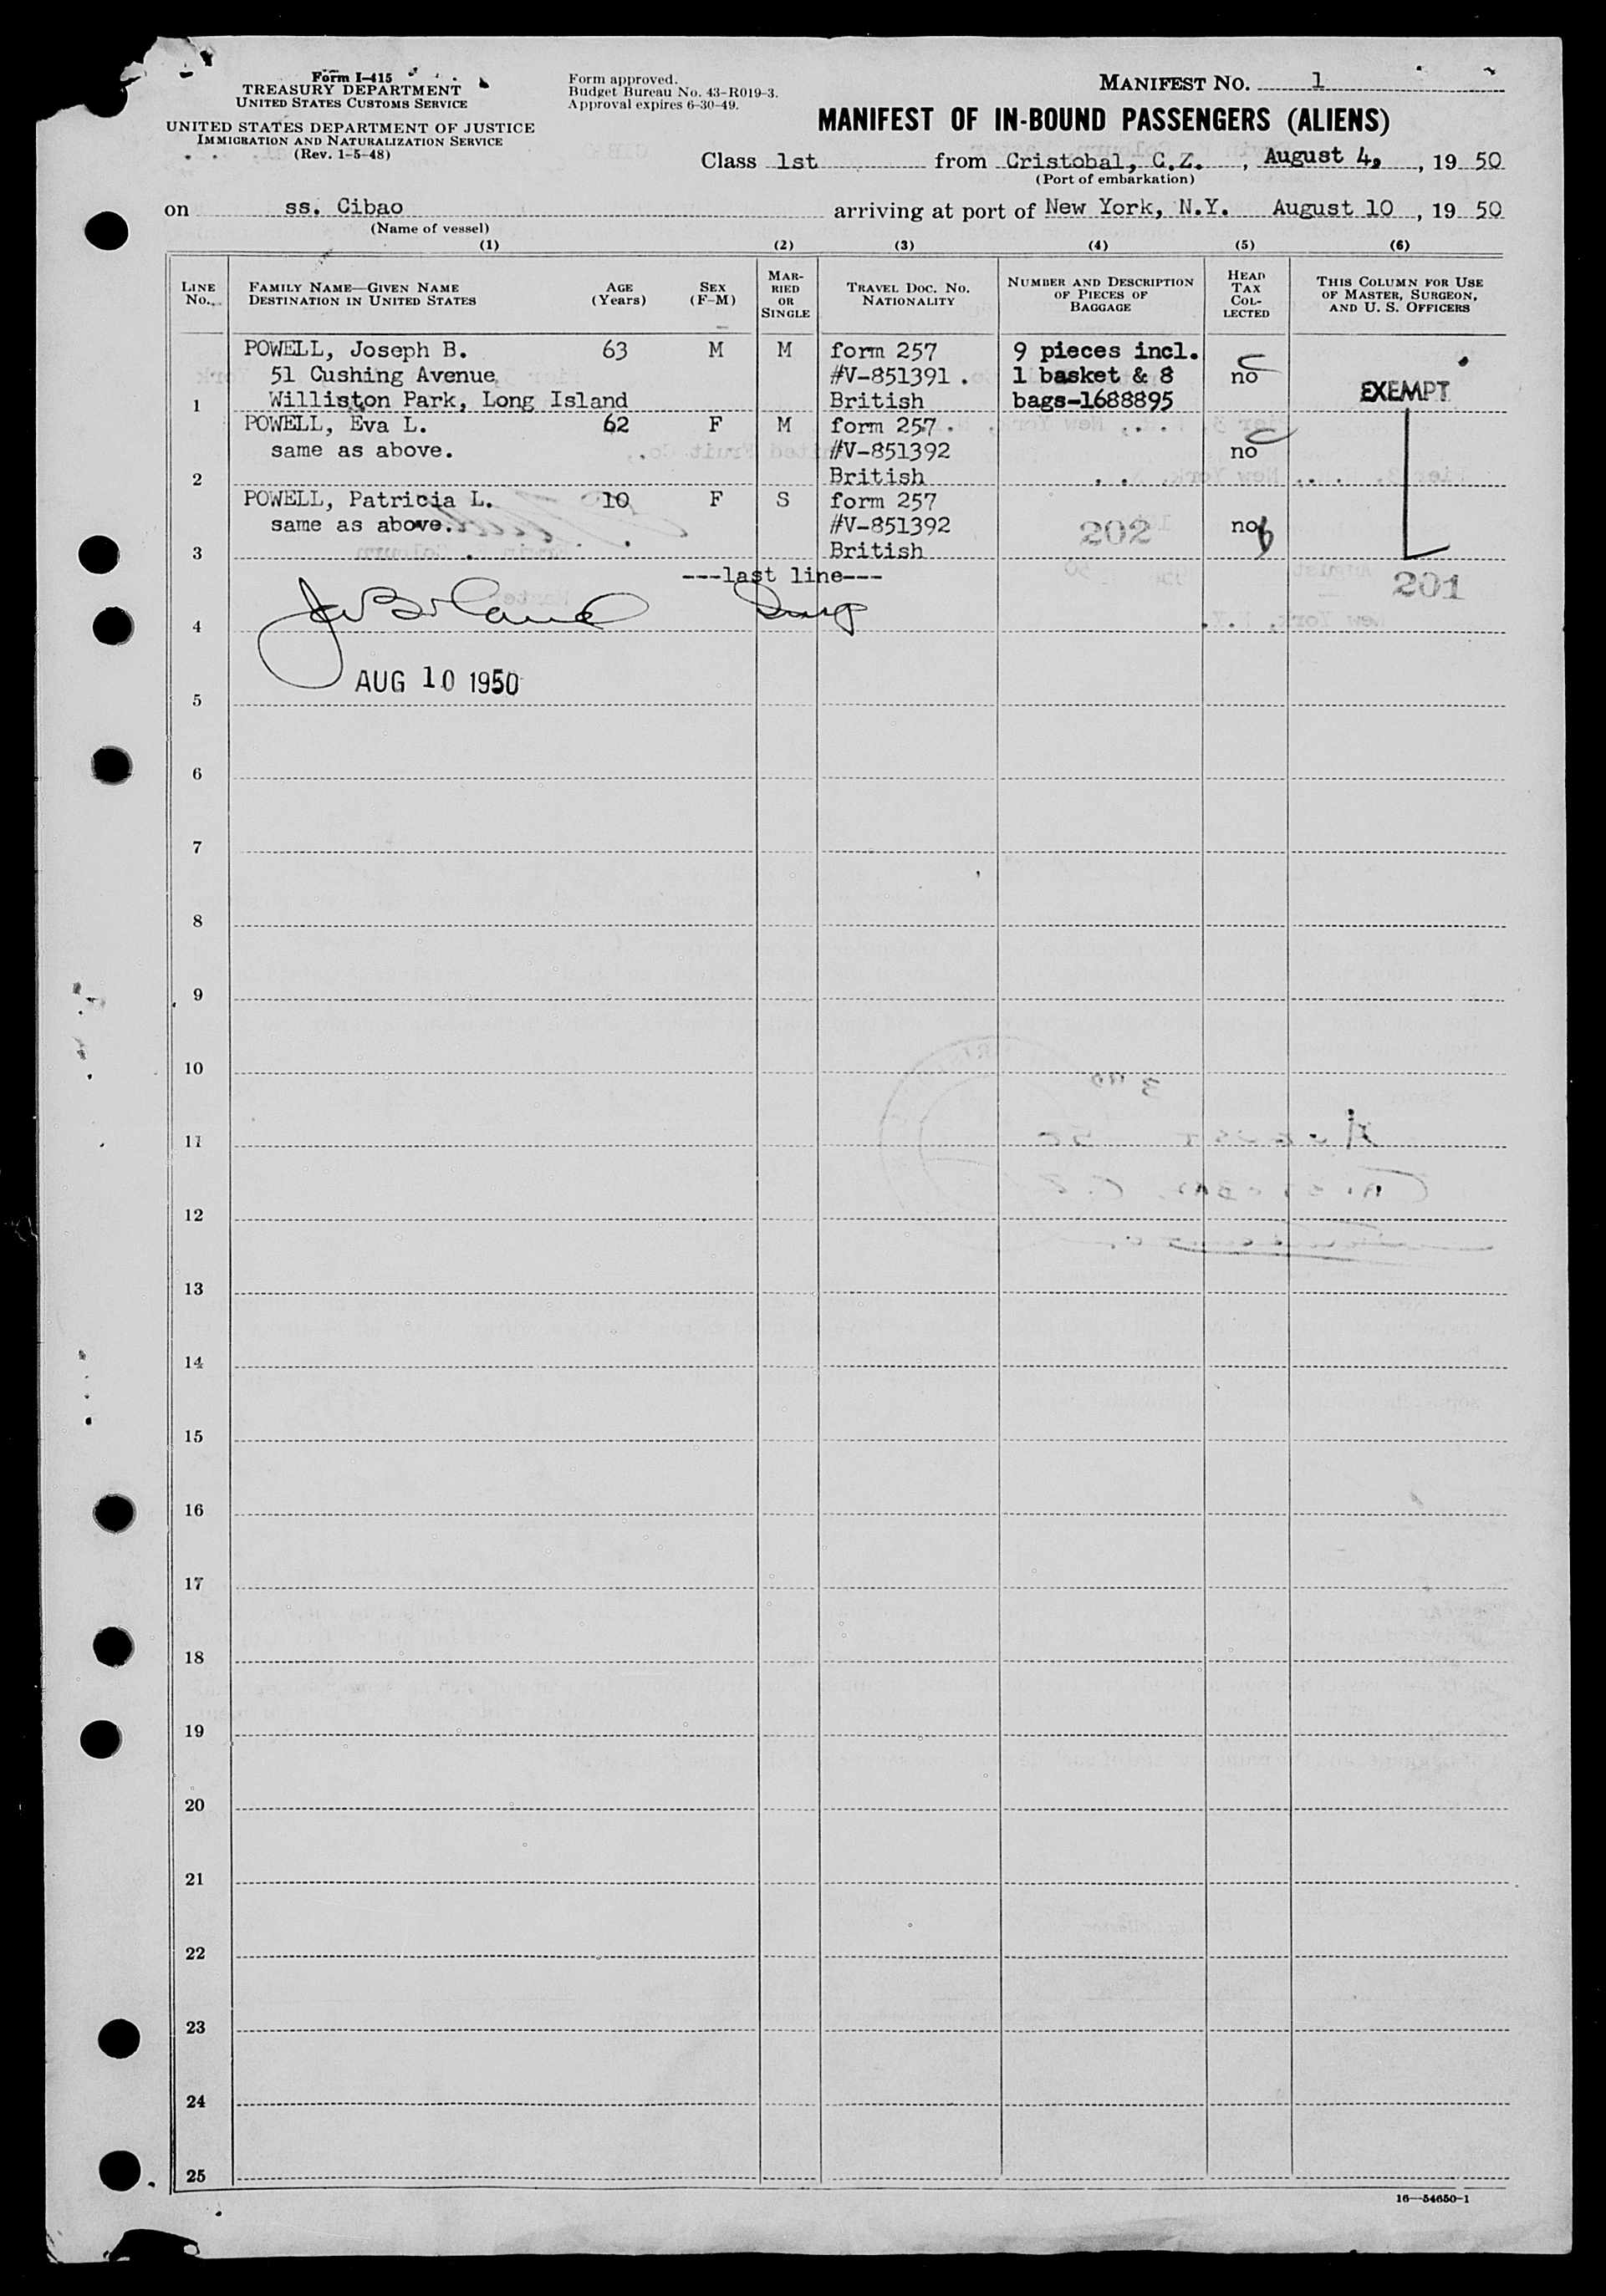 Form I-415
TREASURY DEPARTMENT
UNITED STATES CUSTOMS SERVICE
UNITED STATES DEPARTMENT OF JUSTICE
IMMIGRATION AND NATURALIZATION SERVICE
(Rev. 1-5-48)
Form approved.
Budget Bureau No. 43-R019-3.
Approval expires 6-30-49.
MANIFEST NO. 1
MANIFEST OF IN-BOUND PASSENGERS (ALIENS)
Class 1st from Cristobal, C.Z., August 4, 19 50
(Port of embarkation)
on ss. Cibao arriving at port of New York, N.Y. August 10, 19 50
(Name of vessel)
(1) (2) (3) (4) (5) (6)
LINE NO. FAMILY NAME—GIVEN NAME DESTINATION IN UNITED STATES AGE (Years) SEX (F-M) MARRIED OR SINGLE TRAVEL DOC. NO. NATIONALITY NUMBER AND DESCRIPTION OF PIECES OF BAGGAGE HEAD TAX COLLECTED THIS COLUMN FOR USE OF MASTER, SURGEON, AND U. S. OFFICERS
POWELL, Joseph B. 63 M M form 257 9 pieces incl.
51 Cushing Avenue #V-851391 . 1 basket & 8 no
1 Williston Park, Long Island British bags-1688895 EXEMPT
POWELL, Eva L. 62 F M form 257
same as above. #V-851392 no
2 British
POWELL, Patricia L. 10 F S form 257
same as above. #V-851392 202 no
3 British
---last line---
201
4
AUG 10 1950
5
6
7
8
9
10
11
12
13
14
15
16
17
18
19
20
21
22
23
24
25
16—54650-1